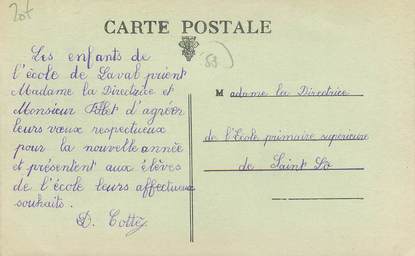 207
CARTE POSTALE
83
Les enfants de
l'école de Laval prient
Madame la Directrice et
Monsieur d'agréer
leurs vœux respectueux
pour la nouvelle année
et présentent aux élèves
de l'école leurs affectueux
souhaits.
D. Cottez
Madame la Directrice
de l'École primaire supérieure
de Saint Lô